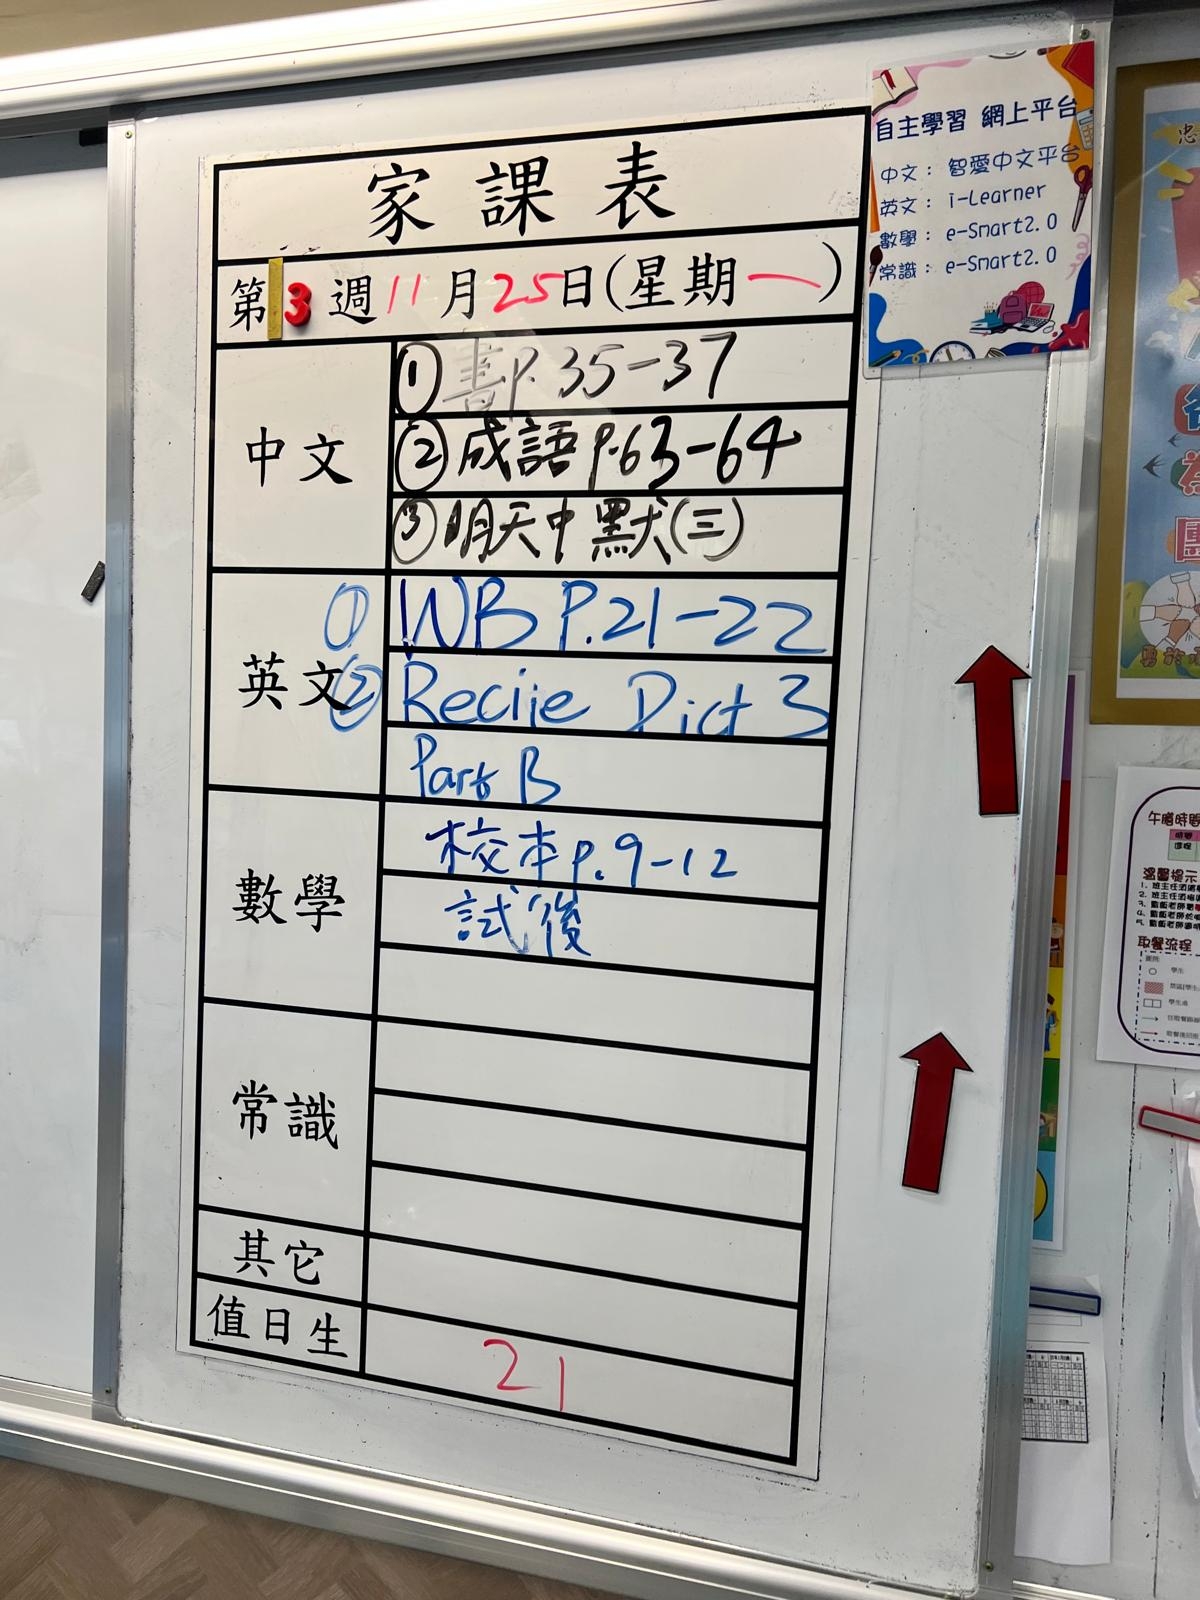 家課表
第 3 週 11 月 25 日(星期一)
中文
① 書P.35-37
② 成語 P.63-64
③ 明天中默(三)
英文
① WB P.21-22
② Recite Dict 3
Part B
數學
校本 p.9-12
試後
常識
其它
值日生
21
自主學習 網上平台
中文： 智愛中文平台
英文： i-Learner
數學： e-Smart2.0
常識： e-Smart2.0
午膳時間
溫馨提示
取餐流程
學生